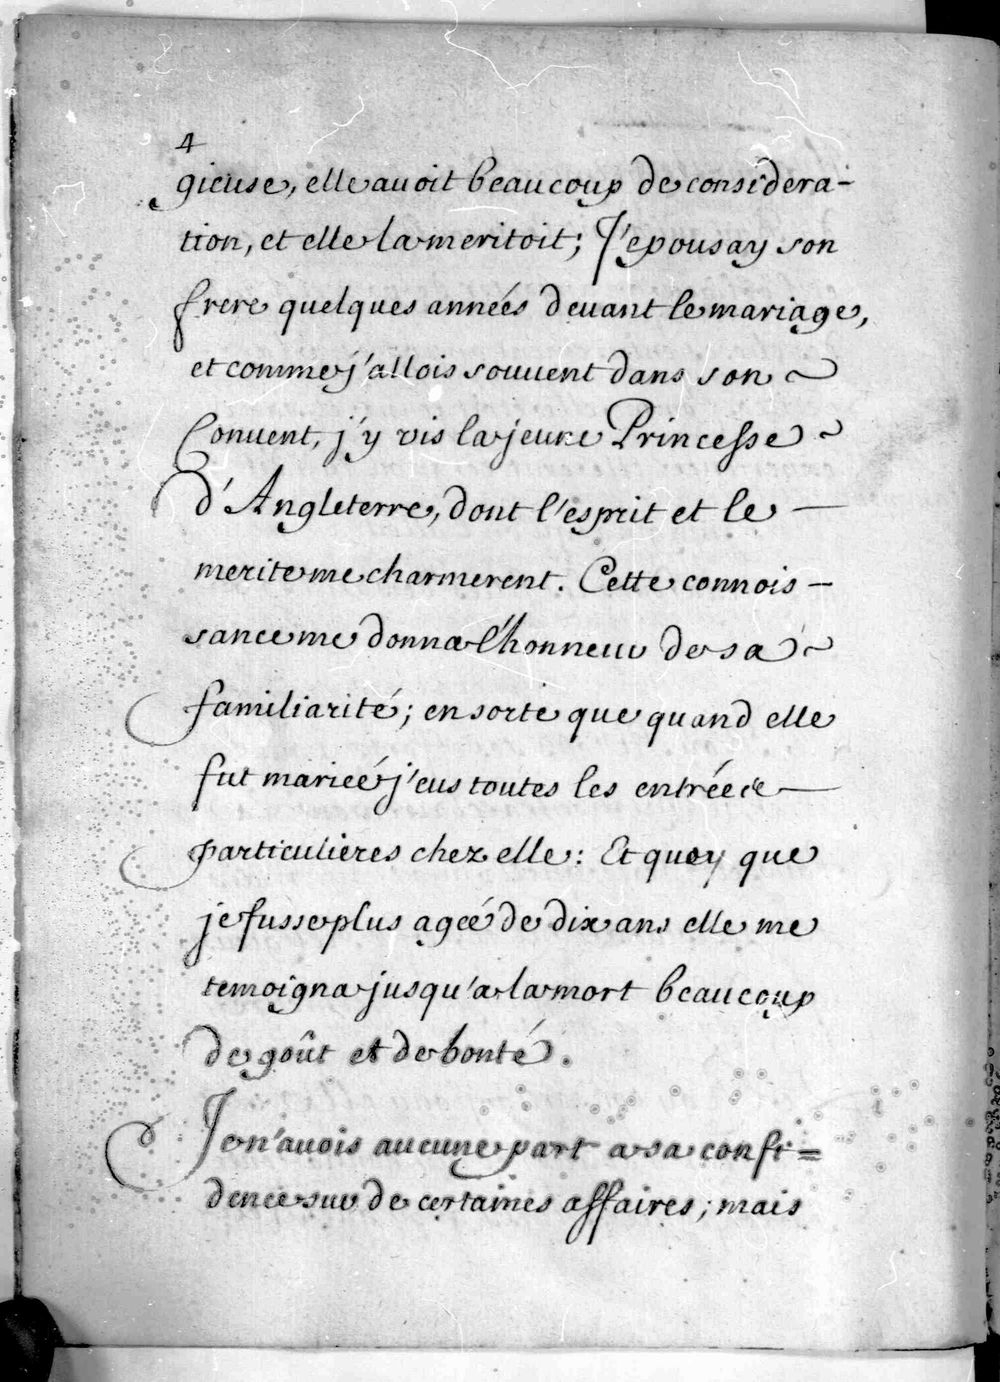 4
gieuse, elle auoit beaucoup de considera-
tion, et elle la meritoit; J'epousay son
frere quelques années deuant le mariage,
et comme j'allois souuent dans son ~
Conuent, j'y vis la jeune Princesse ~
d'Angleterre, dont l'esprit et le —
merite me charmerent. Cette connois-
sance me donna l'honneur de sa ~
familiarité; en sorte que quand elle
fut mariée j'eus toutes les entrées —
particulieres chez elle: Et quoy que
je fusse plus agée de dix ans elle me
temoigna jusqu'a la mort beaucoup
de goût et de bonté.
Je n'auois aucune part a sa confi=
dence sur de certaines affaires; mais